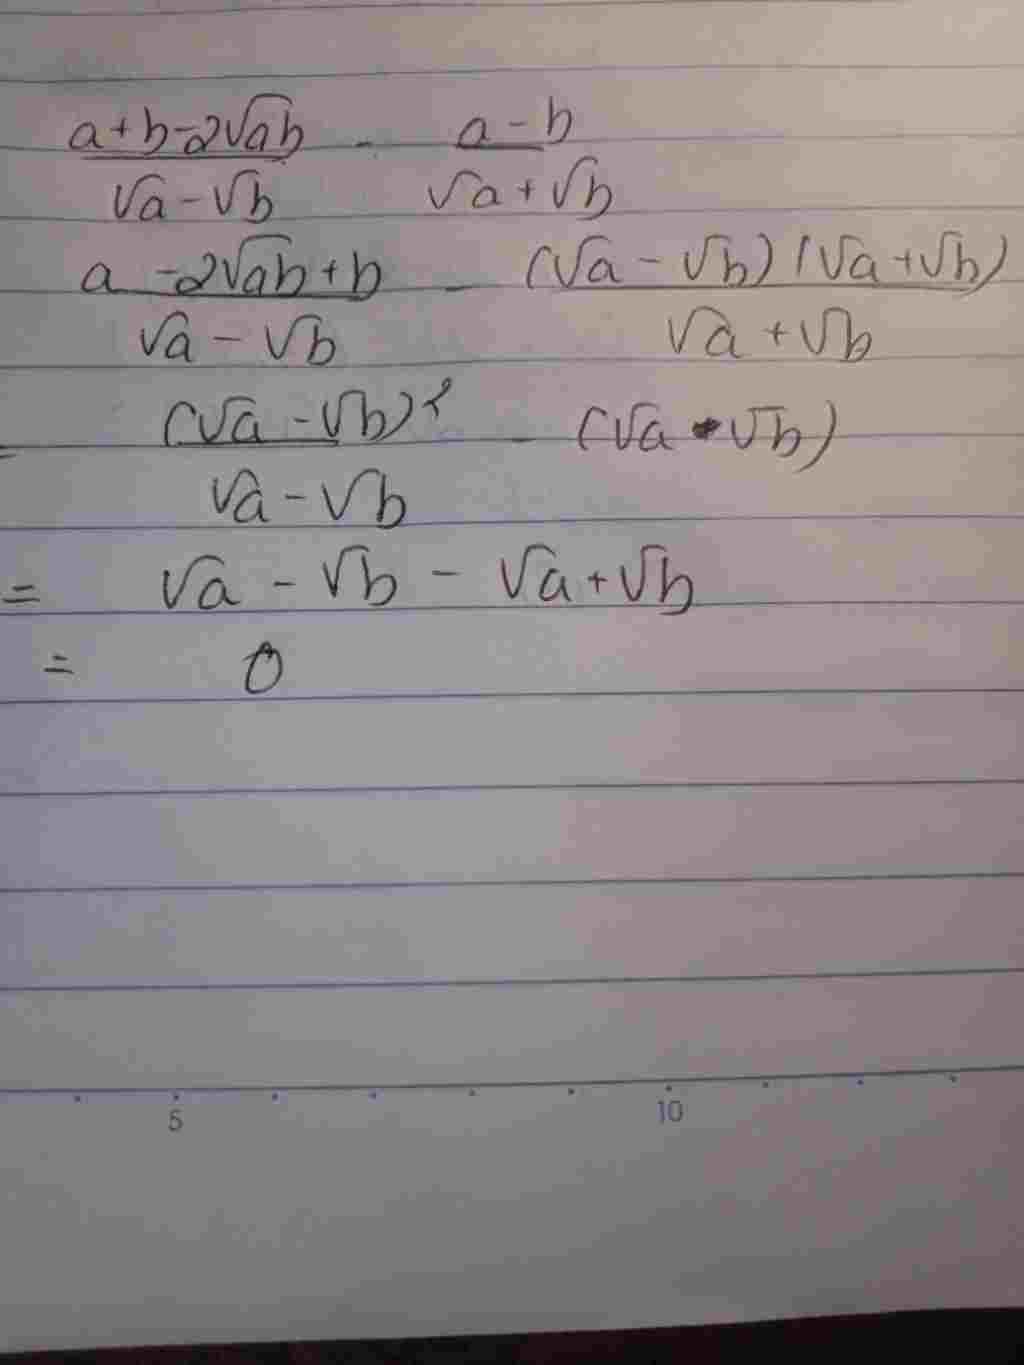 (a+b-2√(ab))/(√a-√b) - (a-b)/(√a+√b)
(a-2√(ab)+b)/(√a-√b) - ((√a-√b)(√a+√b))/(√a+√b)
= (√a-√b)²/(√a-√b) - (√a-√b)
= √a-√b-√a+√b
= 0
5 10